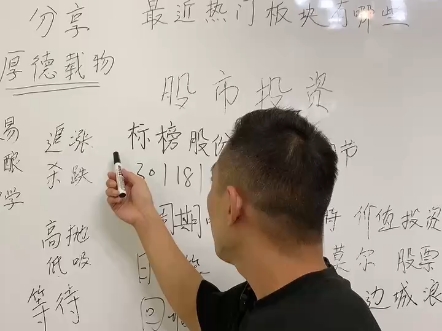 分享
最近热门板块有哪些
厚德载物
股市投资
易
追涨
标榜股份
节
杀跌
301181
学
周期
价值投资
高抛
低吸
莫尔 股票
等待
日
边城浪
②